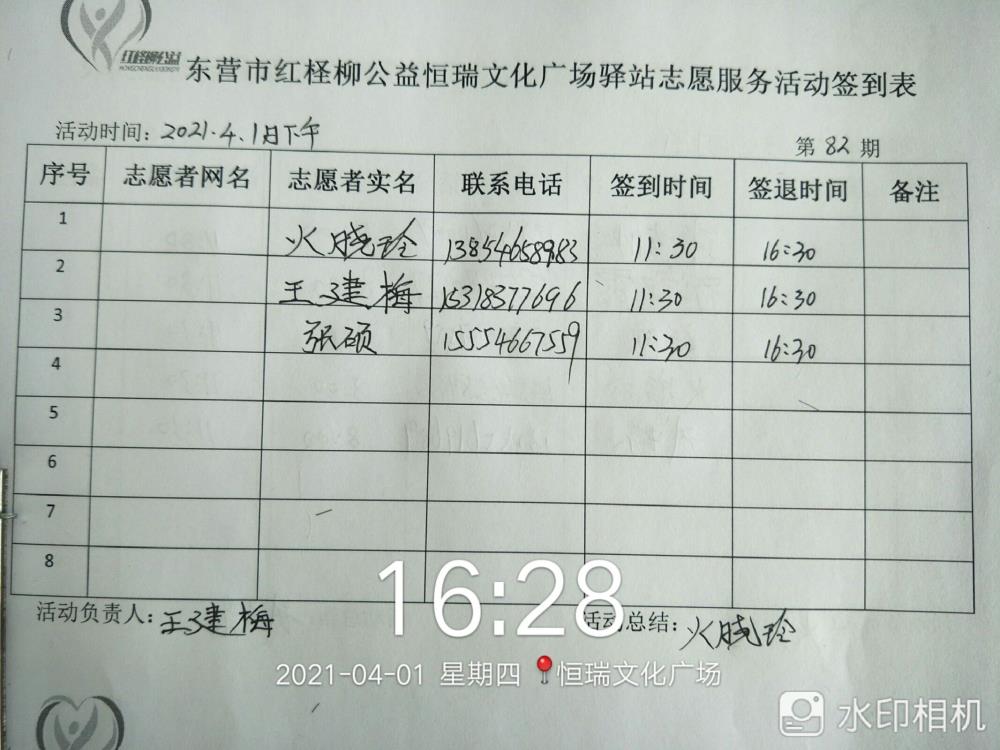 红柽柳公益
HONGCHENGLIUGONGYI
东营市红柽柳公益恒瑞文化广场驿站志愿服务活动签到表
活动时间：2021.4.1日下午
第 82 期
序号 志愿者网名 志愿者实名 联系电话 签到时间 签退时间 备注
1 火晓玲 13854658983 11:30 16:30
2 王建梅 15318377696 11:30 16:30
3 张硕 15554667559 11:30 16:30
4
5
6
7
8
活动负责人：王建梅 活动总结：火晓玲
16:28
2021-04-01 星期四 恒瑞文化广场
水印相机